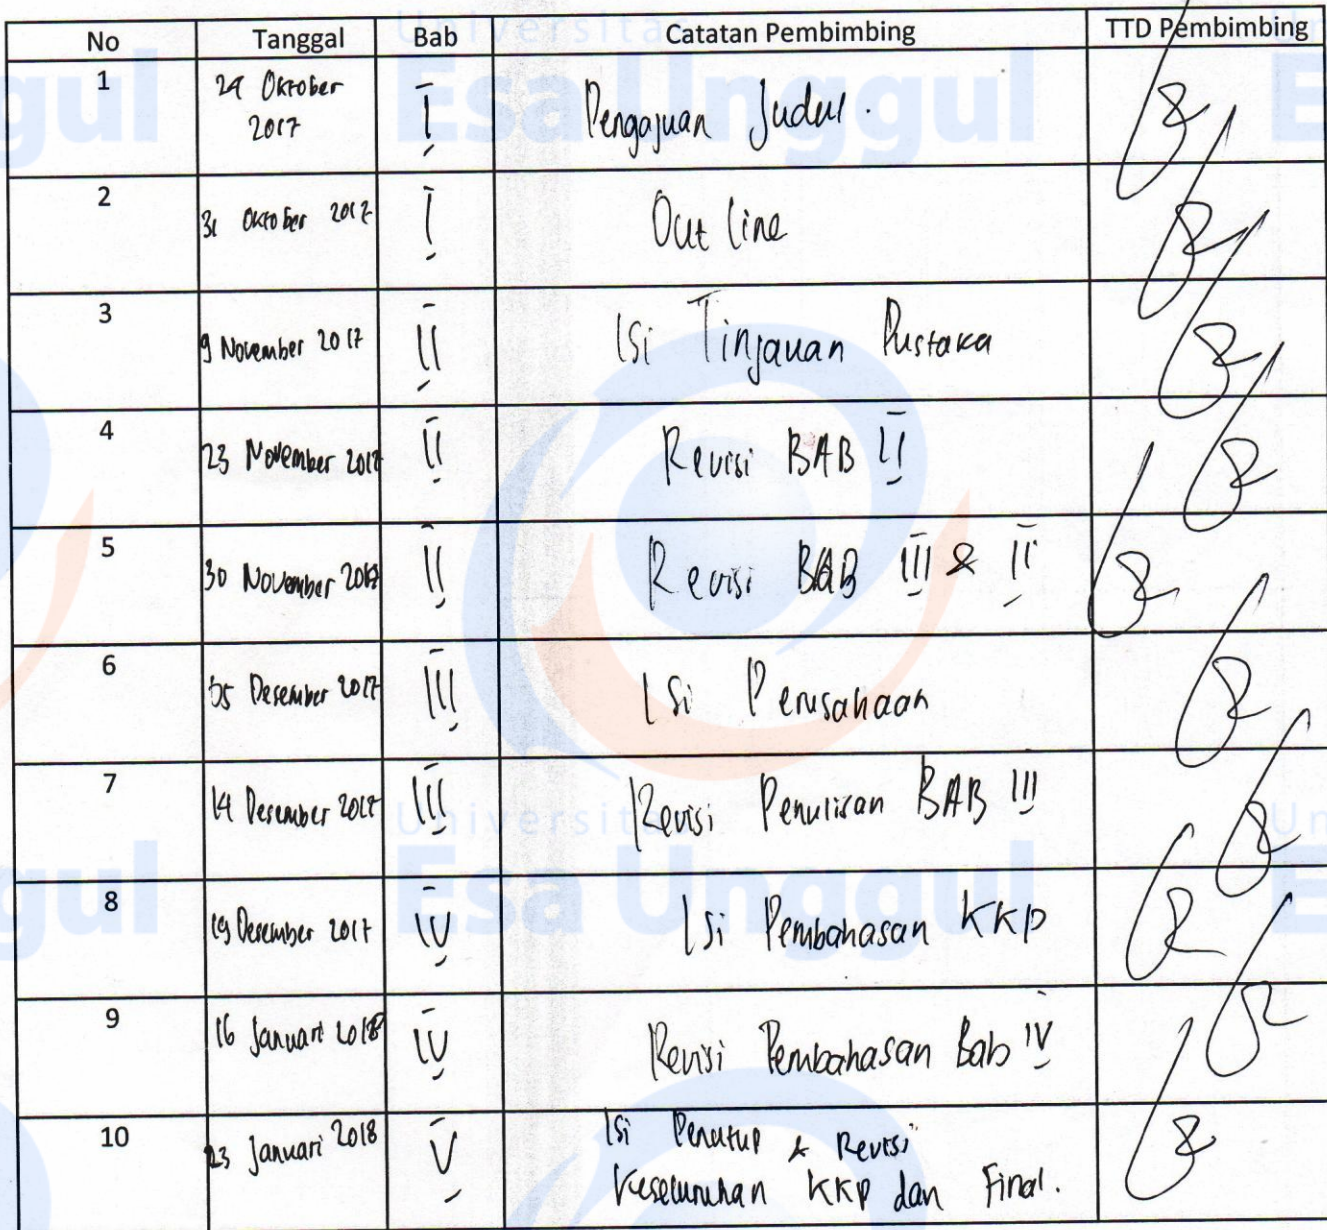 No Tanggal Bab Catatan Pembimbing TTD Pembimbing
1 24 Oktober 2017 I Pengajuan Judul.
2 31 Oktober 2017 I Out line
3 9 November 2017 II Isi Tinjauan Pustaka
4 23 November 2017 II Revisi BAB II
5 30 November 2017 II Revisi BAB III & II
6 05 Desember 2017 III Isi Perusahaan
7 14 Desember 2017 III Revisi Penulisan BAB III
8 19 Desember 2017 IV Isi Pembahasan KKP
9 16 Januari 2018 IV Revisi Pembahasan Bab IV
10 23 Januari 2018 V Isi Penutup & Revisi
Keseluruhan KKP dan Final.
Universitas
Esa Unggul
Universitas
Esa Unggul